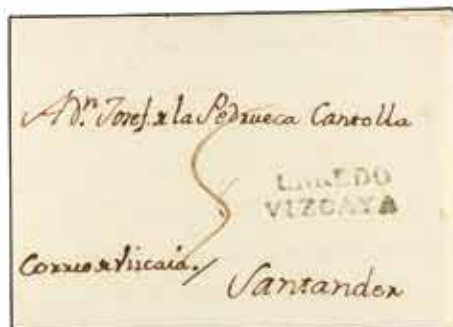 A Dn. Josef. de la Pedrueca Cantolla
5
LAREDO
VIZCAYA
Correo de Viscaia.
Santander